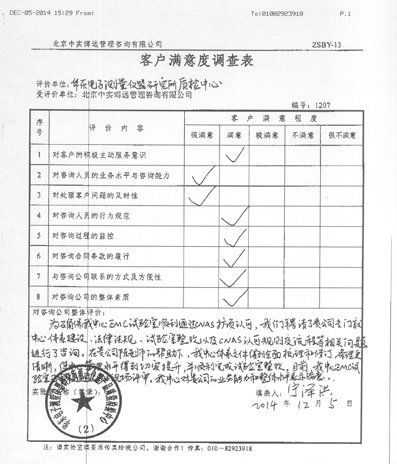 DEC-05-2014 15:29 From: To:01082923918 P.1
北京中实博远管理咨询有限公司 ZSBY-13
客户满意度调查表
评价单位: 华东电子测量仪器研究所质检中心
受评价单位:北京中实博远管理咨询有限公司
编号: 1207
序号 评价内容 客户满意程度
很满意 满意 较满意 不满意 很不满意
1 对客户的积极主动服务意识 ✓
2 对咨询人员的业务水平与咨询能力 ✓
3 对处理客户问题的及时性 ✓
4 对咨询人员的行为规范 ✓
5 对咨询过程的监控 ✓
6 对咨询合同条款的履行 ✓
7 与咨询公司联系的方式及方便性 ✓
8 对咨询公司的整体素质 ✓
对咨询公司整体评价:
为了确保我中心EMC试验室顺利通过CNAS扩项认可,我们聘请了贵公司专门就
中心体系建设、法律法规、试验室整改以及CNAS认可规则及流程等相关问题
进行了咨询。在贵公司的帮助下,我中心体系文件得到全面梳理和修订,管理更
清晰,水平得到切实提升,并顺利完成试验室整改。目前,我中心EMC试
验室现场评审。我中心对贵公司业务能力和整体水平表示满意。
填表人:
2014年12月5日
(2)
注:请实验室填答后传真给我公司,谢谢合作!传真:010-82923918